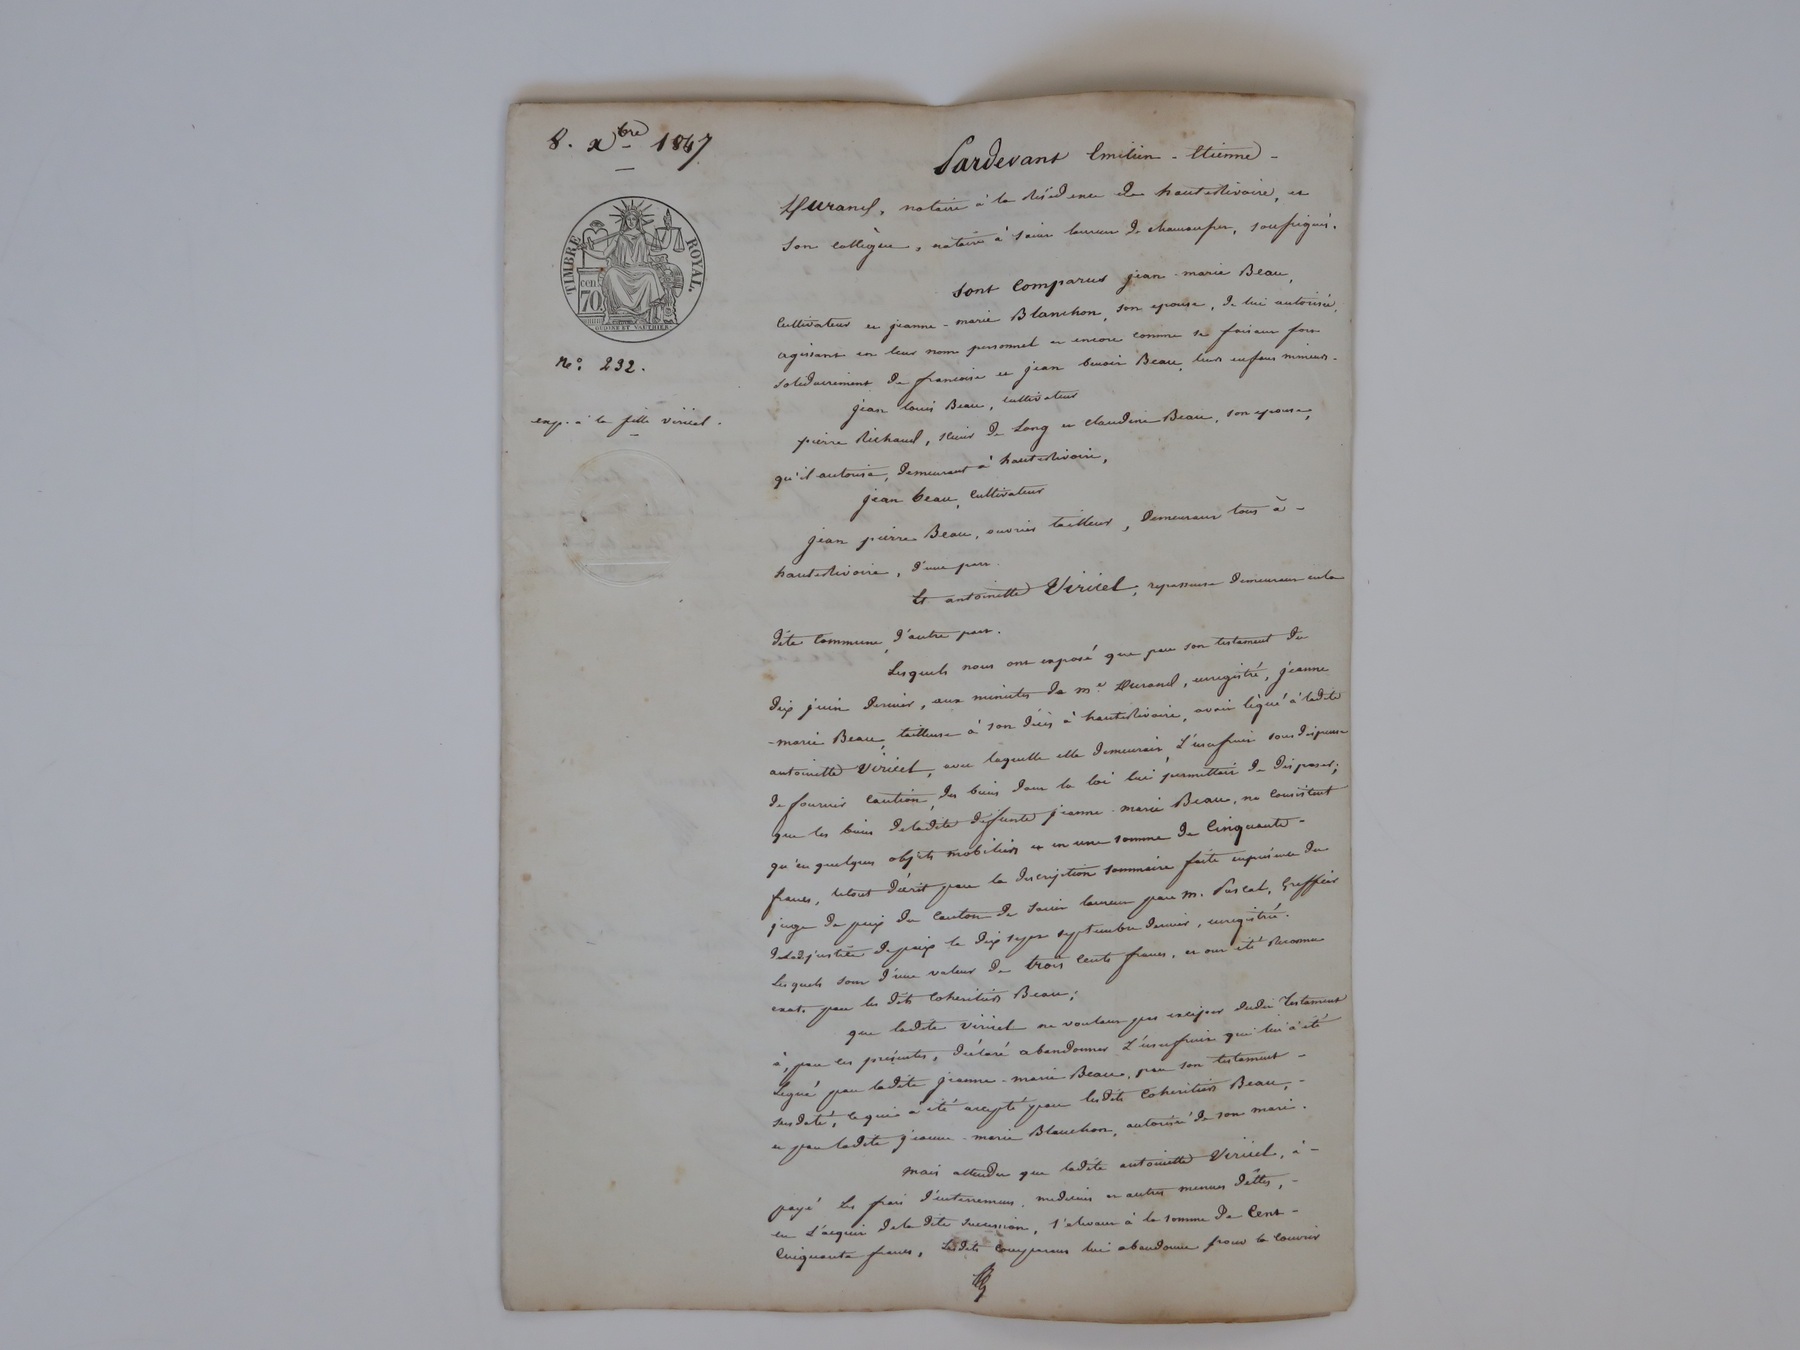 8. xbre 1847
TIMBRE ROYAL.
cen.
70
OUDINE ET VAUTHIER.
No. 232.
exp. à la fille viricel.
Pardevant Emilien - Etienne -
Durand, notaire à la résidence de hauterivoire, et
son collègue, notaire à saint laurent de chamousset, soussignés.
sont comparus jean-marie Beau,
cultivateur et jeanne-marie Blanchon, son epouse, de lui autorisée,
agissant en leur nom personnel et encore comme se faisant fort
solidairement de francoise et jean benoit Beau, leurs enfans mineurs.
jean louis Beau, cultivateur
pierre Richard, scieur de Long et claudine Beau, son epouse,
qu'il autorise, demeurant à hauterivoire,
jean beau, cultivateur
jean pierre Beau, ouvrier tailleur, demeurant tous à -
hauterivoire, d'une part.
Et antoinette Viricel, repasseuse demeurant en la
dite commune, d'autre part.
Lesquels nous ont exposé que par son testament du
dix juin dernier, aux minutes de me Durand, enregistré, jeanne
-marie Beau, tailleuse à son décès à hauterivoire, avait légué à ladite
antoinette Viricel, avec laquelle elle demeurait, L'usufruit sous dispense
de fournir caution, des biens dont la loi lui permettait de disposer;
que les biens deladite deffunte jeanne-marie Beau, ne consistent
qu'en quelques objets mobiliers et en une somme de Cinquante -
francs, letout décrit par la description sommaire faite en présence du
juge de paix du canton de saint laurent par m. Pascal, Greffier
deladjustice depaix le dix sept septembre dernier, enregistrée.
Lesquels sont d'une valeur de trois cents francs, et ont été reconnu
exact par les dits Cohéritiers Beau;
que ladite viricel ne voulant pas exciper dudit Testament
à, par ces présentes, déclaré abandonner L'usufruit qui lui à été
Légué par ladite jeanne-marie Beau, par son testament -
susdaté, ce qui a été accepté par lesdits Cohéritiers Beau, -
et par ladite jeanne-marie Blanchon, autorisée de son mari.
mais attendu que ladite antoinette Viricel, à -
payé les frais d'enterrement, medecins et autres menues dèttes, -
en L'acquit dela dite succession, s'elevant à la somme de Cent -
Cinquante francs, Lesdits comparans lui abandonne pour la couvrir